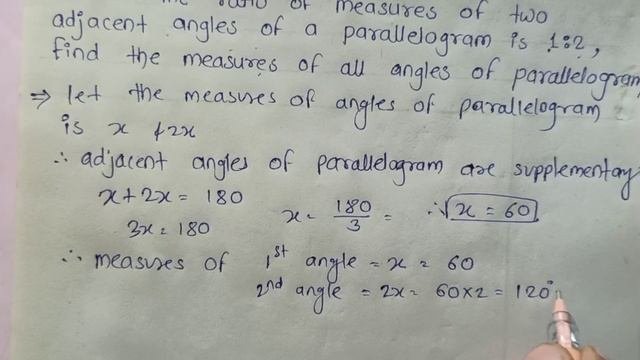 ratio of measures of two
adjacent angles of a parallelogram is 1:2,
find the measures of all angles of parallelogram
⇒ let the measures of angles of parallelogram
is x & 2x
∴ adjacent angles of parallelogram are supplementary
x + 2x = 180
3x = 180
x = 180/3 = ∴ x = 60
∴ measures of 1st angle = x = 60
2nd angle = 2x = 60×2 = 120°